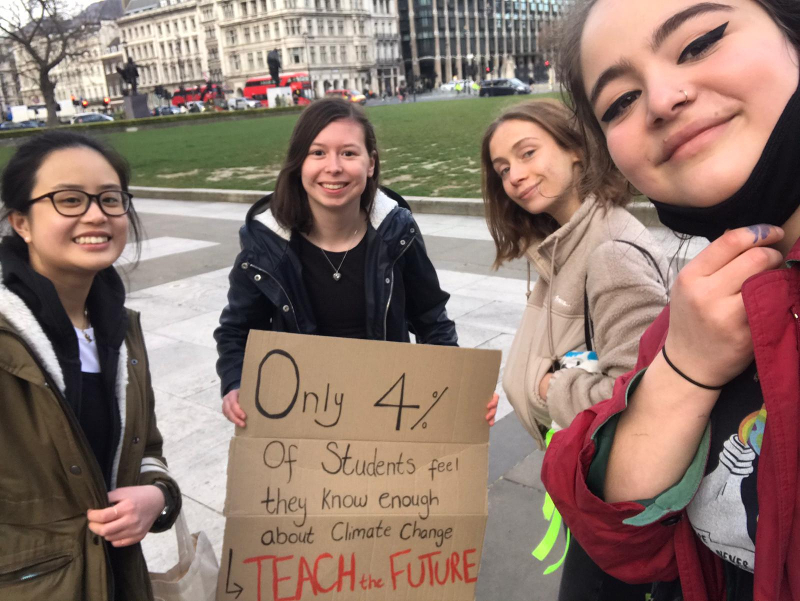 Only 4%
Of Students feel
they know enough
about Climate Change
↳ TEACH the FUTURE
NEVER